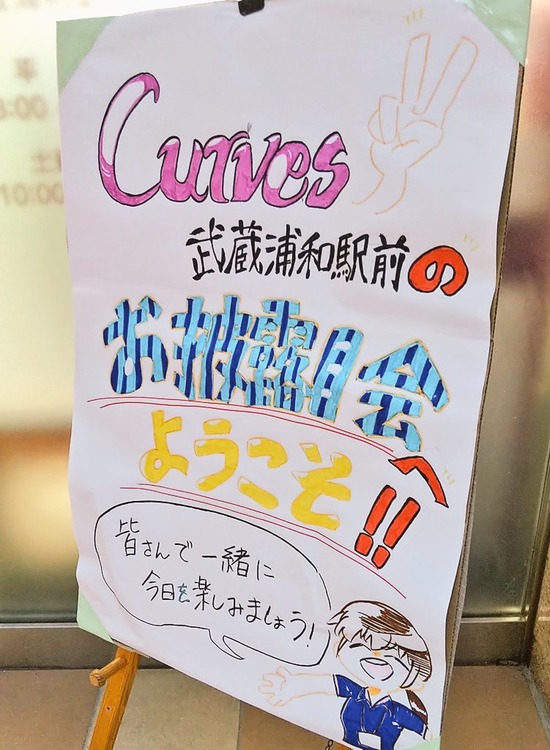 Curves
武蔵浦和駅前の
お披露目会へ
ようこそ!!
皆さんで一緒に
今日を楽しみましょう!